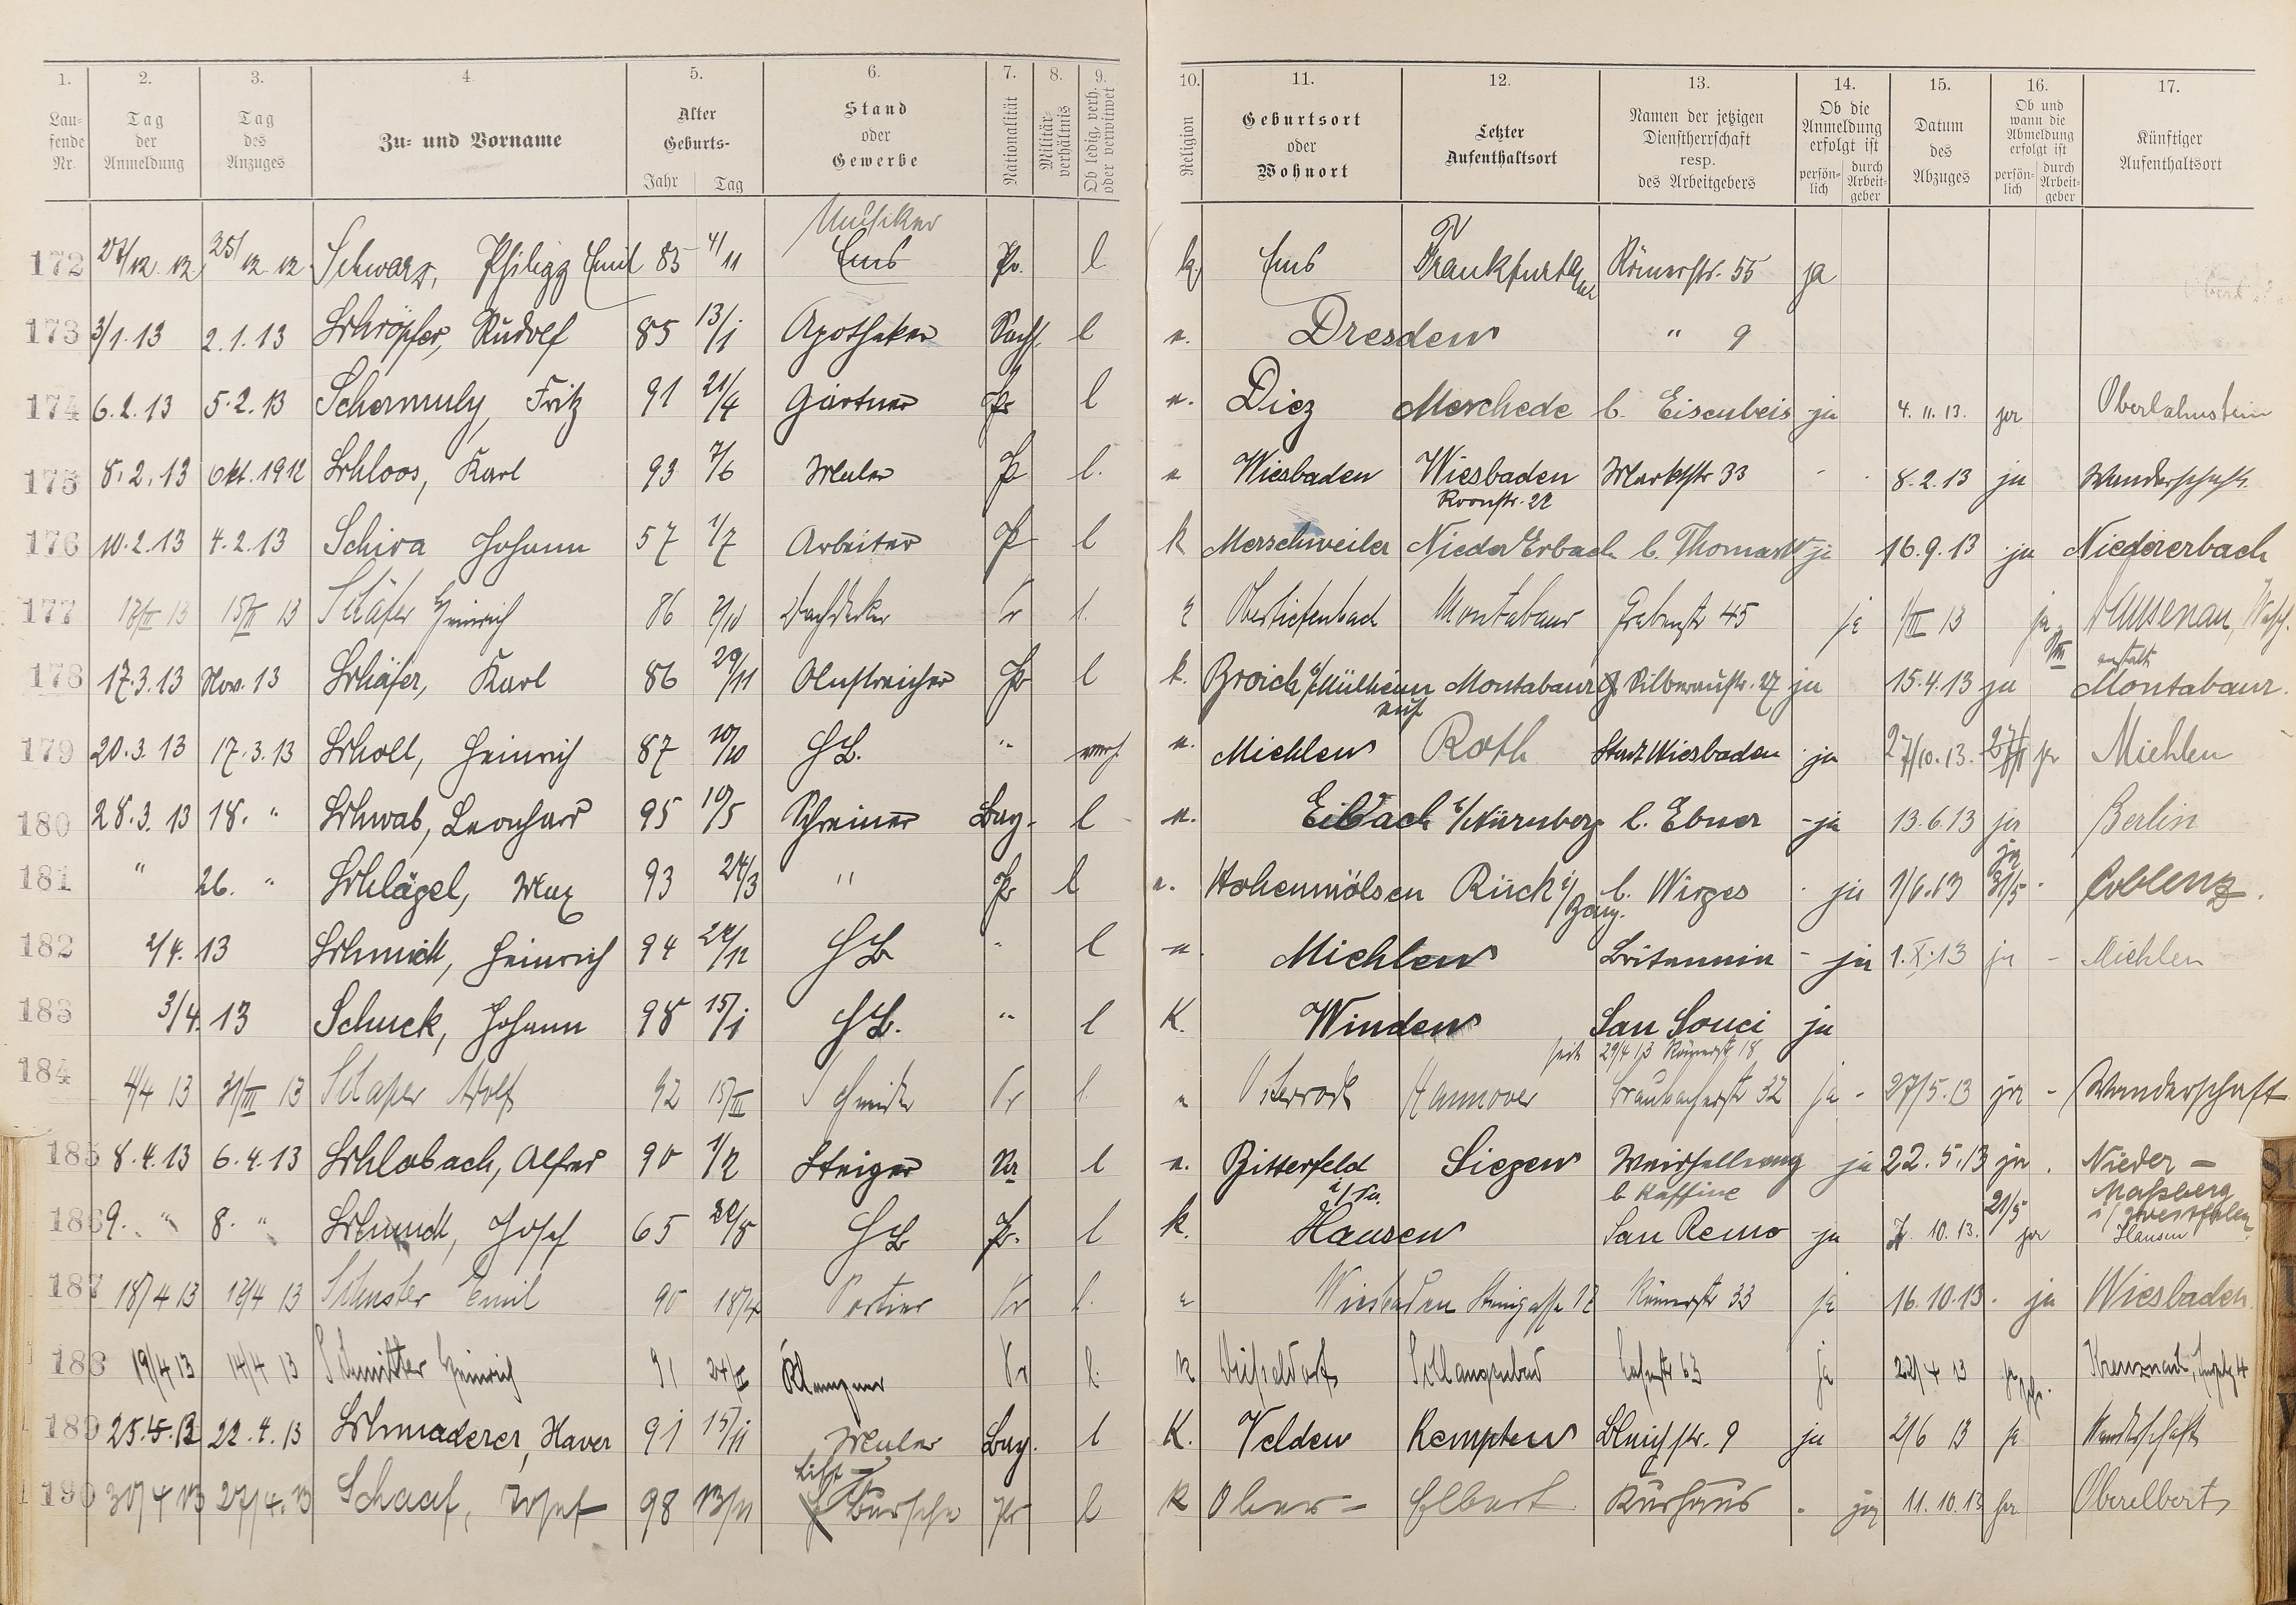 1. 2. 3. 4. 5. 6. 7. 8. 9. 10. 11. 12. 13. 14. 15. 16. 17.
Laufende Nr. Tag der Anmeldung Tag des Anzuges Zu- und Vorname Alter Geburts- Jahr Tag Stand oder Gewerbe Nationalität Militärverhältnis Ob ledig, verh. oder verwitwet Religion Geburtsort oder Wohnort Letzter Aufenthaltsort Namen der jetzigen Dienstherrschaft resp. des Arbeitgebers Ob die Anmeldung erfolgt ist persönlich durch Arbeitgeber Datum des Abzuges Ob und wann die Abmeldung erfolgt ist persönlich durch Arbeitgeber Künftiger Aufenthaltsort
Musiker
172 27/12.12. 25/12.12. Schwarz, Philipp Emil 85 4/11 Ems Pr. l k Ems Frankfurt Römerstr. 55 ja
173 3/1.13 2.1.13 Schröpfer, Rudolf 85 13/1 Apotheker Sachs. l e. Dresden " 9
174 6.2.13 5.2.13 Schermuly, Fritz 91 21/4 Gärtner Pr l e. Diez Meschede b. Eisenbeis ja 4.11.13. ja Oberlahnstein
175 8.2.13 Okt.1912 Schloos, Karl 93 7/6 Maler Pr l. e Wiesbaden Wiesbaden Marktstr 33 - 8.2.13 ja Wanderschaft.
Roonstr. 22
176 10.2.13 4.2.13 Schira Johann 57 1/7 Arbeiter Pr l k Merschweiler Nieder Erbach b. Thomas ja 16.9.13 ja Niedererbach
177 17/II 13 15/II 13 Schäfer Heinrich 86 Dachdecker Pr l. Obertiefenbach Montabaur Grabenstr 45 ja 1/III 13 ja Nassau,
anstalt
178 17.3.13 Nov. 13 Schäfer, Karl 86 29/11 Anstreicher Pr l k. Broich b/Mülheim Montabaur Silberaustr. 27 ja 15.4.13 ja Montabaur.
179 20.3.13 17.3.13 Scholl, Heinrich 87 10/10 HB. " verh. e. Miehlen Roth Stadt Wiesbaden ja 27/10.13. ja Miehlen
180 28.3.13 18. " Schwab, Leonhard 95 10/5 Schreiner Bay. l e. Eibach b/Nürnberg b. Ebner - ja 13.6.13 ja Berlin
181 " 26. " Schlägel, Max 93 24/3 " Pr l e. Hohenmölsen Rück i/Bay. b. Wirges ja 1/6.13 ja 31/5 Coblenz.
182 2/4. 13 Schmidt, Heinrich 94 24/12 HB " l e Miehlen Britannia - ja 1.X.13 ja - Miehlen
183 3/4. 13 Schuck, Johann 98 15/1 HB. " l K. Winden San Souci ja
seit 29/4 13 Römerstr 18
184 4/4 13 31/III 13 Schaper Adolf 92 15/III Schmied Pr l. e Osterrode Hannover Braubacherstr 32 ja - 27/5.13 ja - Wanderschaft
185 8.4.13 6.4.13 Schlobach, Alfred 90 1/2 Steiger Pr l e. Bitterfeld Siegen ja 22.5.13 ja. Nieder-
i/Sa. 21/5 i/Westfalen
186 9. " 8. " Schmidt, Josef 65 20/8 HB Pr. l k. Hausen San Remo ja 10.13. ja Hausen
187 18/4 13 13/4 13 Schuster Emil 90 18/4 Portier Pr l. e Wiesbaden Steingasse 12 Römerstr 33 ja 16.10.13. ja Wiesbaden.
188 19/4 13 14/4 13 Schmitter Heinrich 91 24/II Klempner Pr l. k Düsseldorf Schlangenbad 63 ja 22/4 13 ja Kreuznach,
189 25.4.13 22.4.13 Schmaderer, Xaver 91 15/11 Maler Bay. l K. Velden Kempten Bleichstr. 9 ja 2/6 13 ja Wanderschaft
Lift-
190 30/4 13 27/4.13 Schaaf, Josef 98 13/11 Bursche Pr l k Ober- Elbert Kurhaus - ja 11.10.13 ja Oberelbert